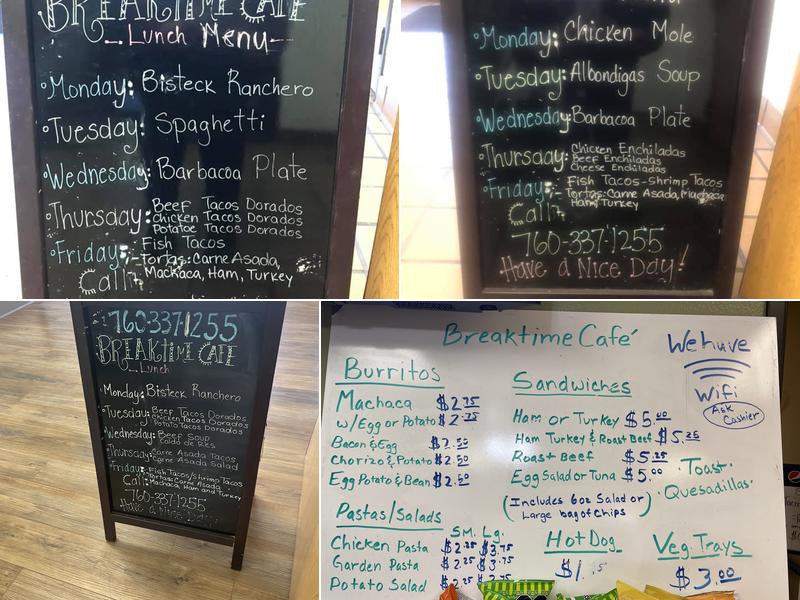 BREAKTIME CAFE
Lunch Menu
Monday: Bisteck Ranchero
Tuesday: Spaghetti
Wednesday: Barbacoa Plate
Thursday: Beef Tacos Dorados
Chicken Tacos Dorados
Potatoe Tacos Dorados
Friday: Fish Tacos
-Tortas: Carne Asada,
Machaca, Ham, Turkey
Call:
Monday: Chicken Mole
Tuesday: Albondigas Soup
Wednesday: Barbacoa Plate
Thursday: Chicken Enchiladas
Beef Enchiladas
Cheese Enchiladas
Friday: Fish Tacos-Shrimp Tacos
-Tortas: Carne Asada, Machaca
Ham, Turkey
Call:
760-337-1255
Have a Nice Day!
760-337-1255
BREAKTIME CAFE
Lunch
Monday: Bisteck Ranchero
Tuesday: Beef Tacos Dorados
Chicken Tacos Dorados
Potato Tacos Dorados
Wednesday: Beef Soup
Caldo de Res
Thursday: Carne Asada Tacos
Carne Asada Salad
Friday: Fish Tacos/Shrimp Tacos
Tortas: Carne Asada
Machaca, Ham and Turkey
Call:
760-337-1255
Have a Nice Day
Breaktime Café
We have
wifi
Ask
Cashier
Burritos
Machaca $2.75
w/Egg or Potato $2.75
Bacon & Egg $2.50
Chorizo & Potato $2.50
Egg Potato & Bean $2.50
Pastas/Salads
Sm. Lg.
Chicken Pasta $2.25 $3.75
Garden Pasta $2.25 $3.75
Potato Salad $2.25
Sandwiches
Ham or Turkey $5.00
Ham Turkey & Roast Beef $5.25
Roast Beef $5.25
Egg Salad or Tuna $5.00
(Includes 6oz Salad or
Large bag of Chips)
·Toast·
·Quesadillas·
Hot Dog
$1.
Veg. Trays
$3.00